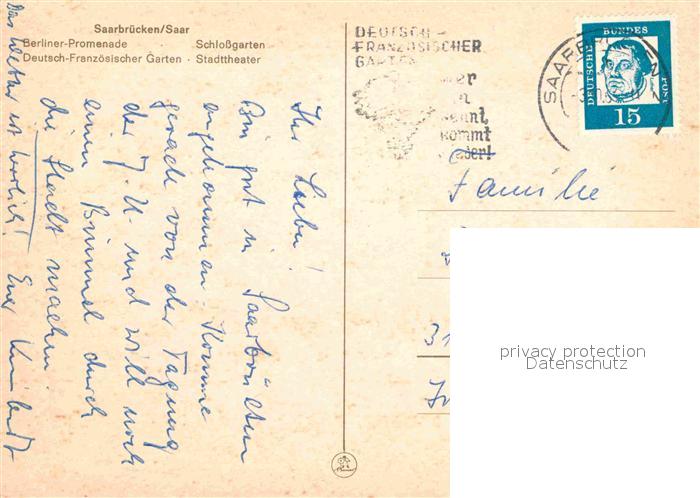 Saarbrücken/Saar
Berliner-Promenade · Schloßgarten
Deutsch-Französischer Garten · Stadttheater
DEUTSCH-
FRANZÖSISCHER
GARTEN
kommt
DEUTSCHE BUNDESPOST
15
Familie
31
privacy protection
Datenschutz
Ihr Lieben!
Bin gut in Saarbrücken
angekommen. Komme
gerade von der Tagung
der J.U. und will noch
einen Bummel durch
die Stadt machen.
Das Wetter ist herrlich! Euer